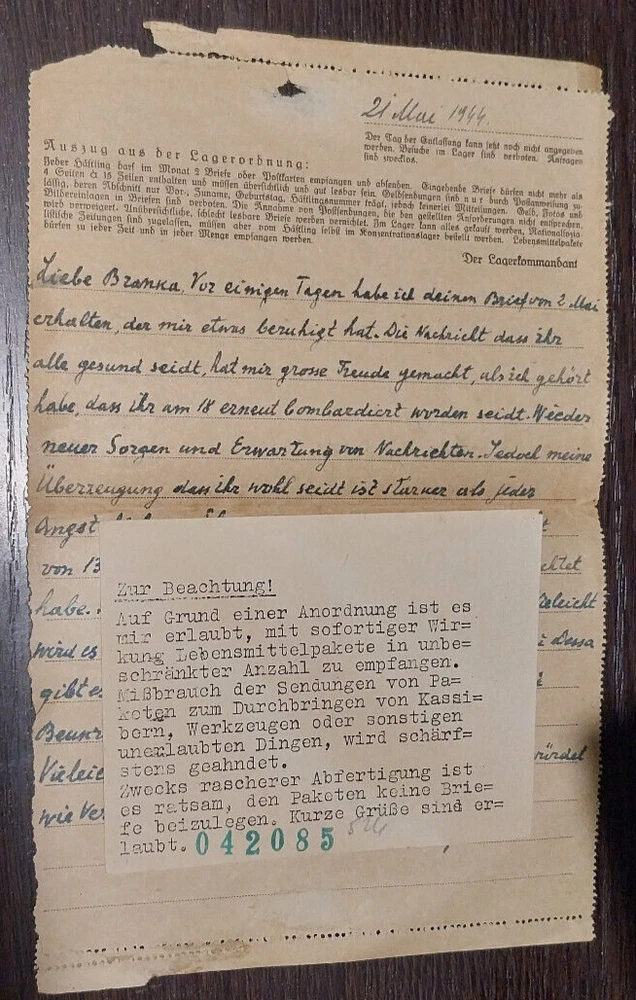 21 Mai 1944.
Der Tag der Entlassung kann jetzt noch nicht angegeben
werden. Besuche im Lager sind verboten. Anfragen
sind zwecklos.
Auszug aus der Lagerordnung:
Jeder Häftling darf im Monat 2 Briefe oder Postkarten empfangen und absenden. Eingehende Briefe dürfen nicht mehr als
4 Seiten à 15 Zeilen enthalten und müssen übersichtlich und gut lesbar sein. Geldsendungen sind nur durch Postanweisung zu-
lässig, deren Abschnitt nur Vor-, Zuname, Geburtstag, Häftlingsnummer trägt, jedoch keinerlei Mitteilungen. Geld, Fotos und
Bildereinlagen in Briefen sind verboten. Die Annahme von Postsendungen, die den gestellten Anforderungen nicht entsprechen,
wird verweigert. Unübersichtliche, schlecht lesbare Briefe werden vernichtet. Im Lager kann alles gekauft werden. Nationalsozia-
listische Zeitungen sind zugelassen, müssen aber vom Häftling selbst im Konzentrationslager bestellt werden. Lebensmittelpakete
dürfen zu jeder Zeit und in jeder Menge empfangen werden.
Der Lagerkommandant
Liebe Branka, Vor einigen Tagen habe ich deinen Brief von 2 Mai
erhalten, der mir etwas beruhigt hat. Die Nachricht dass ihr
alle gesund seidt, hat mir grosse Freude gemacht, als ich gehört
habe, dass ihr am 18 erneut bombardiert worden seidt. Wieder
neuer Sorgen und Erwartung von Nachrichten. Jedoch meine
Überzeugung dass ihr wohl seidt ist starker als jeder
Angst
von 13
habe.
wird es
gibt es
wie
Zur Beachtung!
Auf Grund einer Anordnung ist es
mir erlaubt, mit sofortiger Wir=
kung Lebensmittelpakete in unbe=
schränkter Anzahl zu empfangen.
Mißbrauch der Sendungen von Pa=
keten zum Durchbringen von Kassi=
bern, Werkzeugen oder sonstigen
unerlaubten Dingen, wird schärf=
stens geahndet.
Zwecks rascherer Abfertigung ist
es ratsam, den Paketen keine Brie=
fe beizulegen. Kurze Grüße sind er=
laubt. 042085